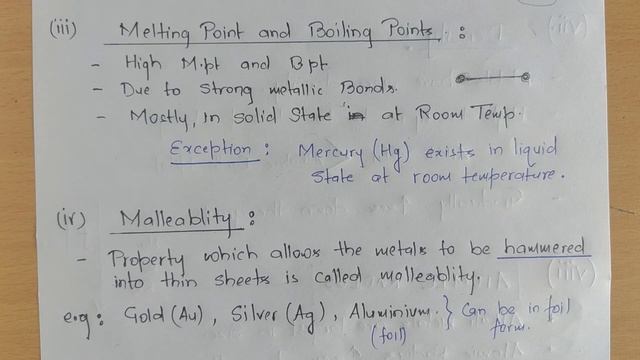 (iii) Melting Point and Boiling Points :
- High M.pt and B pt
- Due to strong metallic Bonds.
- Mostly, in solid State at Room Temp.
Exception : Mercury (Hg) exists in liquid
State at room temperature.
(iv) Malleablity :
- Property which allows the metals to be hammered
into thin sheets is called malleablity.
e.g : Gold (Au) , Silver (Ag) , Aluminium. } Can be in foil
(foil) form.